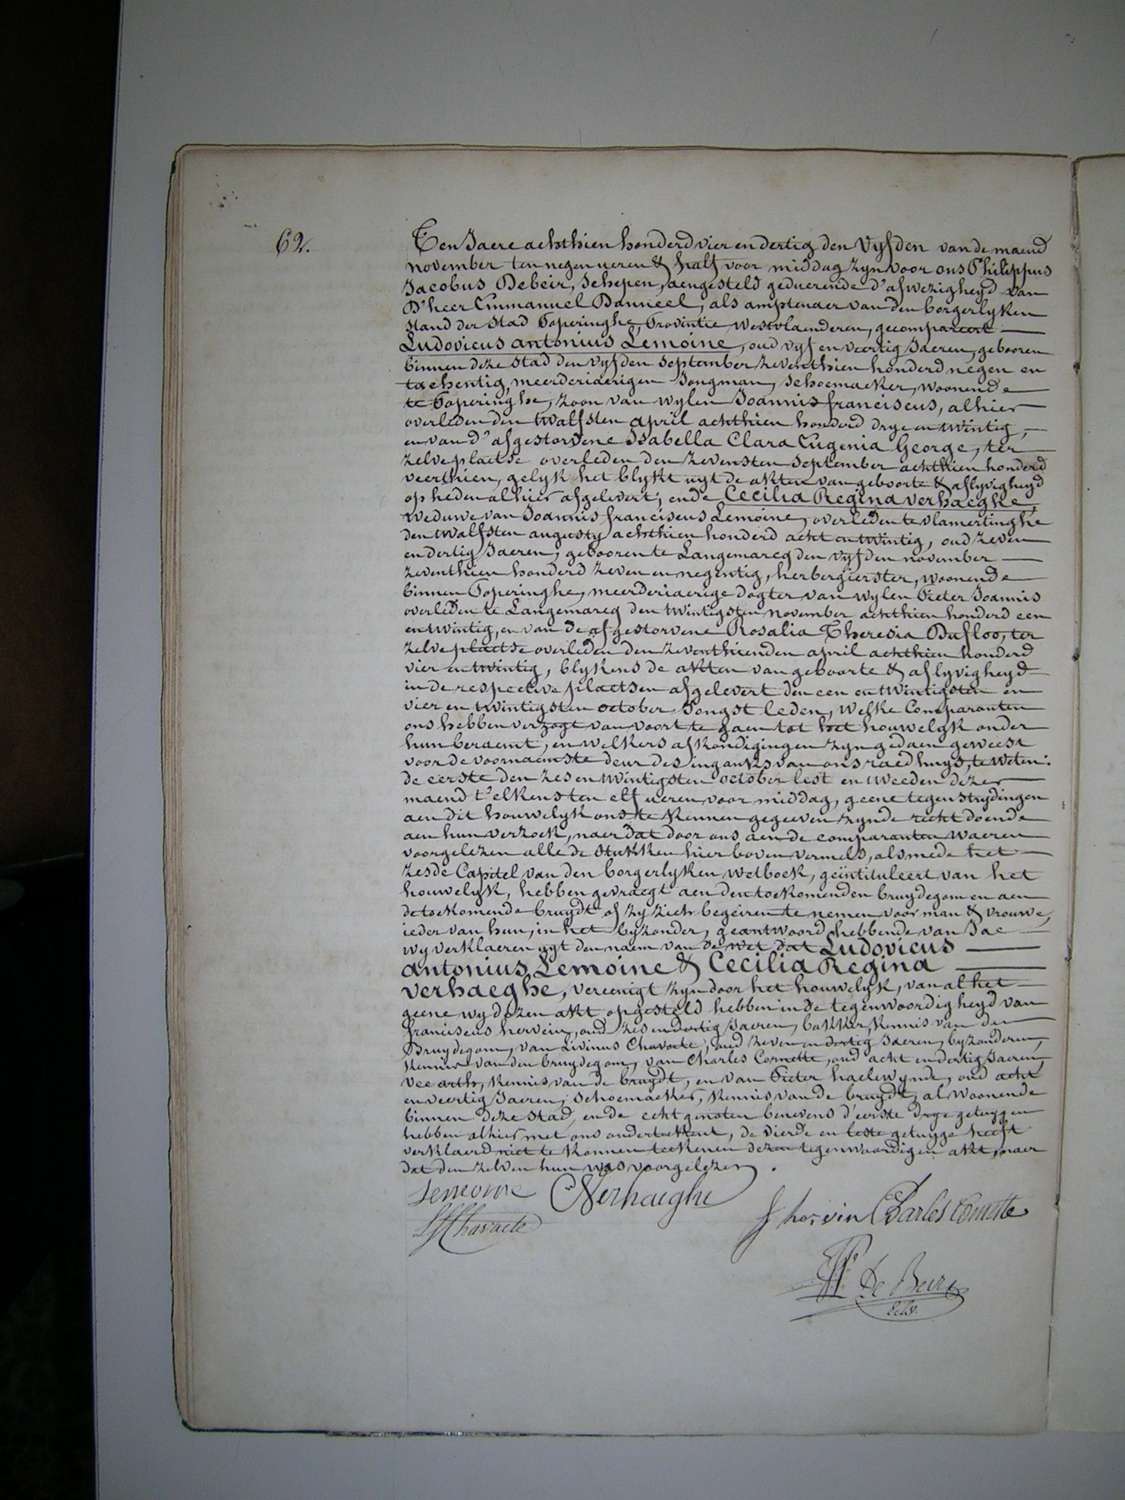 62.
Ten Jaere achthien honderd vier en dertig den Vyfden van de maend
november ten negen ueren & half voor middag zyn voor ons Philippus
Jacobus Debeir, schepen, aengesteld geduerende d'afwezigheyd van
D'heer Emmanuel Banneel, als amptenaer van den borgerlyken
stand der Stad Poperinghe, Provintie Westvlaenderen, gecompareert
Ludovicus antonius Lemoine, oud vyf en veertig Jaeren, gebooren
binnen deze Stad den vyfden September zeventhien honderd negen en
tachentig, meerderjaerigen Jongman, schoemaeker, woonende
te Poperinghe, zoon van wylen Joannis franciscus, alhier
overleden den twalfsten april achthien honderd drye en twintig,
en van d'afgestorvene Isabella Clara Eugenia George, ter
zelve plaetse overleden den zevensten September achthien honderd
veerthien, gelyk het blykt uyt de akten van geboorte & aflyvigheyd
op heden alhier afgelevert, ende Cecilia Regina verhaeghe,
Weduwe van Joannis franciscus Lemoine, overleden te vlamertinghe
den twalfsten augusty achthien honderd acht en twintig, oud zeven
en dertig Jaeren, gebooren te Langemarcq den vyfden november
zeventhien honderd zeven en negentig, herbergierster, woonende
binnen Poperinghe, meerderjaerige dogter van wylen Pieter Joannis
overleden te Langemarcq den twintigsten november achthien honderd een
en twintig, en van de afgestorvene Rosalia Theresia Dafloo, ter
zelve plaetse overleden den zeventhienden april achthien honderd
vier en twintig, blykens de akten van geboorte & aflyvigheyd
in de respective plaetsen afgelevert den een en twintigsten en
vier en twintigsten october Jongst leden, Welke Comparanten
ons hebben verzogt van voort te gaen tot het houwelyk onder
hun beraemt, en welkers afkondigingen zyn gedaen geweest
voor de voornaemste deur des ingangs van ons raedhuys, te weten:
de eerste den zes en twintigsten october lest en tweeden dezer
maend t'elkens ten elf ueren voor middag, geene tegenstrydingen
aen dit houwelyk ons te kennen gegeeven zynde recht doende
aen hun verzoek, naer dat door ons aen de comparanten waeren
voorgelezen alle de Stukken hier boven vermeld, als mede het
zesde Capitel van den borgerlyken wetboek, geïntituleert van het
houwelyk, hebben gevraegt aen den toekomenden bruydegom en aen
de toekomende bruydt of zy zich begeiren te nemen voor man & vrouwe,
ieder van hun, in het byzonder, geantwoord hebbende van Jae
wy verklaeren uyt den naem van de wet dat Ludovicus
antonius Lemoine & Cecilia Regina
verhaeghe, vereenigt zyn door het houwelyk, van al het
geene wy dezen akt opgesteld hebben in de tegenwoordigheyd van
franciscus hervein, oud zes en dertig Jaeren, bakker kennis van den
Bruydegom, van Livinus Chavaete, oud zeven en dertig Jaeren, byzonderen,
kennis van den bruydegom, van Charles Cornette, oud acht en dertig Jaeren,
Vee arts, kennis van de bruydt, en van Pieter haelewyndt, oud acht
en veertig Jaeren, schoemaeker, kennis van de bruydt, al woonende
binnen deze Stad, en de echtgenoten benevens d'eerste drye getuygen
hebben alhier met ons onderteekent, de vierde en leste getuyge heeft
verklaerd niet te konnen teekenen dezen tegenwoordigen akt, naer
dat den zelven hun was voorgelezen.
Lemoine C Verhaeghe
Chavaete f hervin Charles Cornette
De Beir